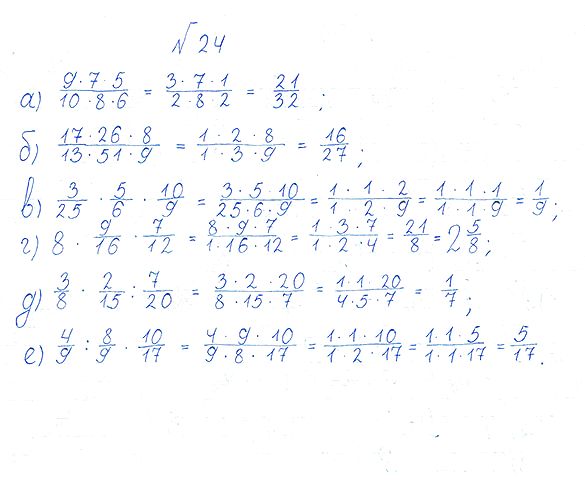 № 24
а) 9·7·5/10·8·6 = 3·7·1/2·8·2 = 21/32 ;
б) 17·26·8/13·51·9 = 1·2·8/1·3·9 = 16/27 ;
в) 3/25 · 5/6 · 10/9 = 3·5·10/25·6·9 = 1·1·2/1·2·9 = 1·1·1/1·1·9 = 1/9 ;
г) 8 · 9/16 · 7/12 = 8·9·7/1·16·12 = 1·3·7/1·2·4 = 21/8 = 2 5/8 ;
д) 3/8 · 2/15 : 7/20 = 3·2·20/8·15·7 = 1·1·20/4·5·7 = 1/7 ;
е) 4/9 : 8/9 · 10/17 = 4·9·10/9·8·17 = 1·1·10/1·2·17 = 1·1·5/1·1·17 = 5/17 .